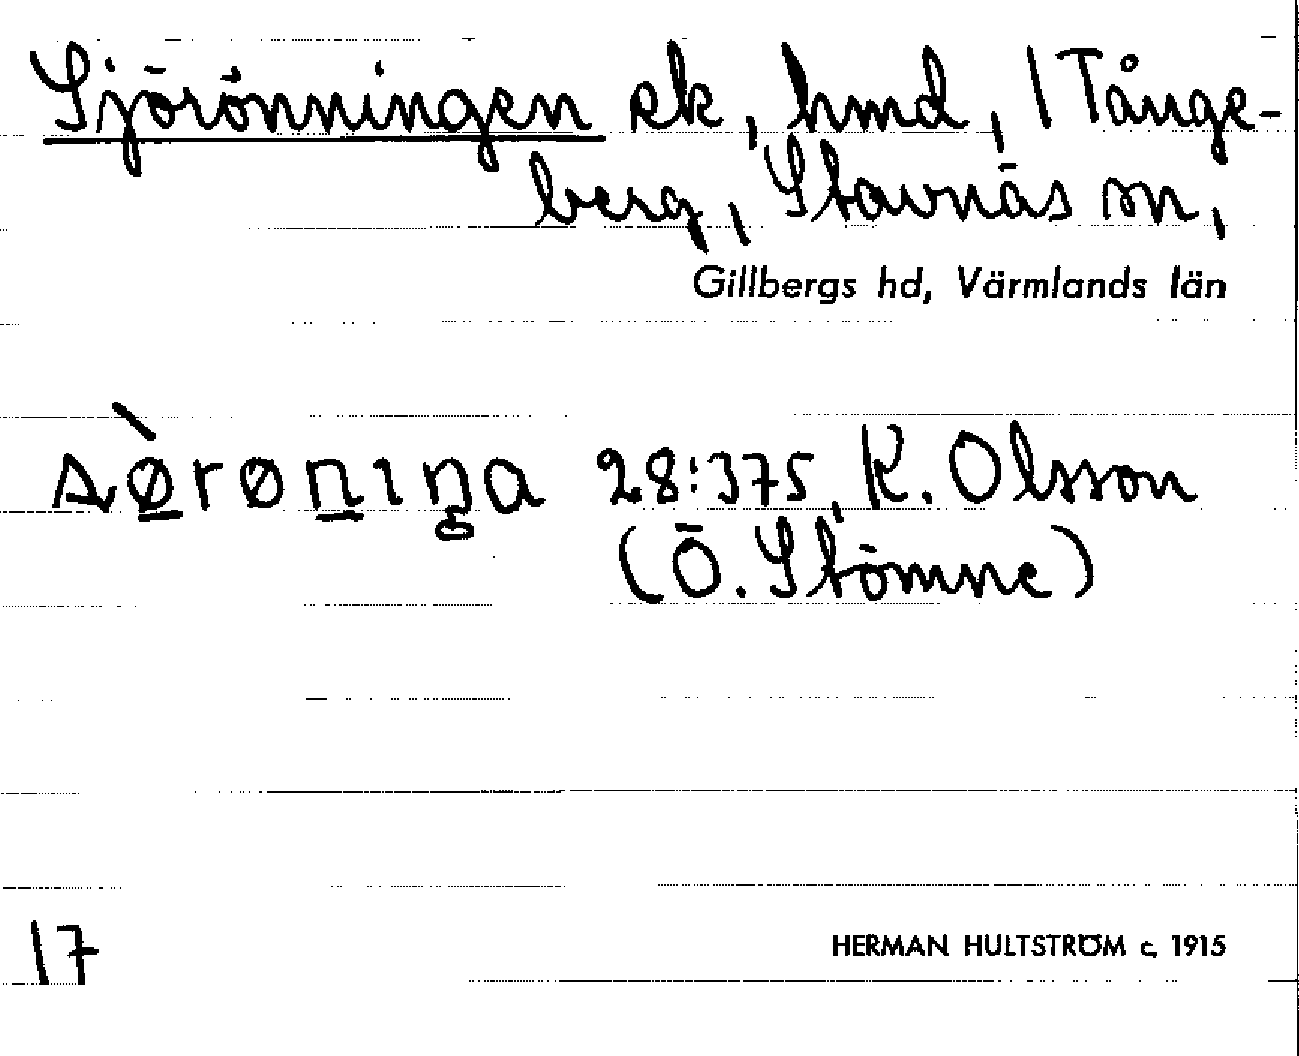 Sjörönningen sk, hmd, 1 Tånge-
berg, Stavnäs sn,
Gillbergs hd, Värmlands län
sø̠̀røn̠ıŋa 28:375, K. Olsson
(Ö. Stömne)
17 HERMAN HULTSTRÖM c, 1915